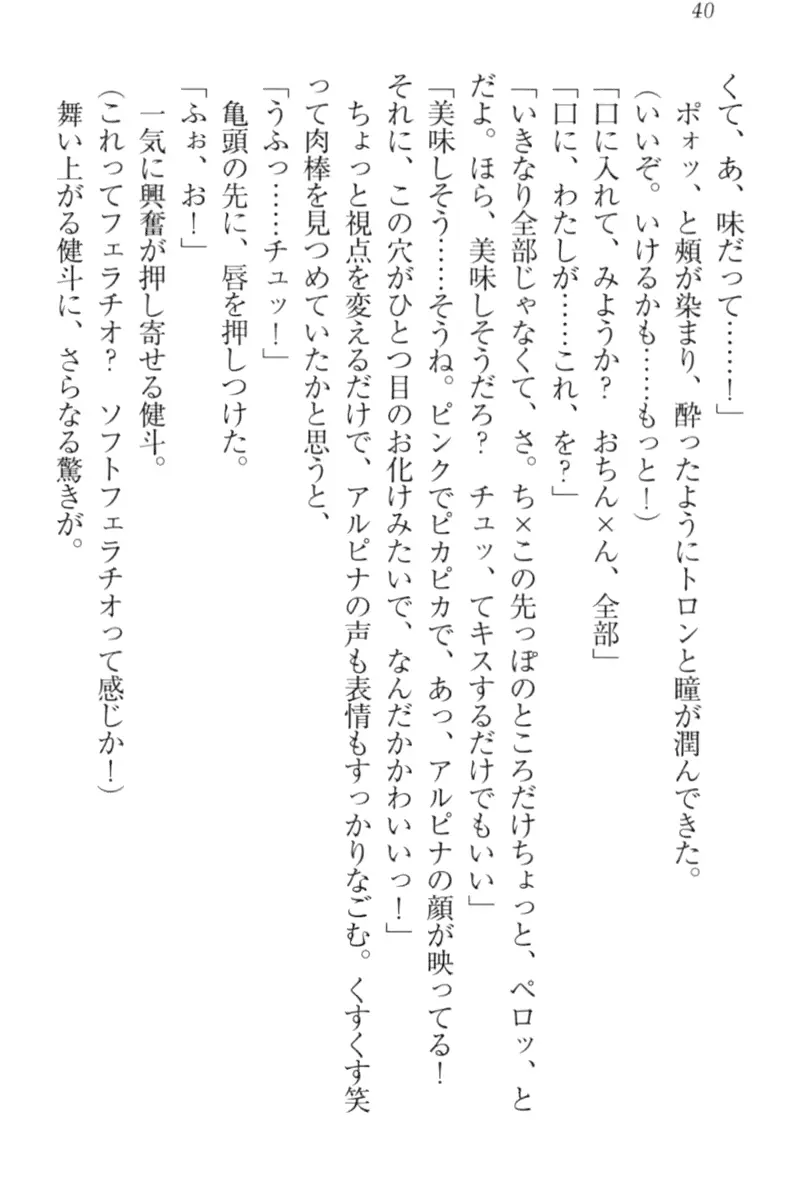 40
くて、あ、味だって……！」
　ポォッ、と頬が染まり、酔ったようにトロンと瞳が潤んできた。
（いいぞ。いけるかも……もっと！）
「口に入れて、みようか？　おちん×ん、全部」
「口に、わたしが……これ、を？」
「いきなり全部じゃなくて、さ。ち×この先っぽのところだけちょっと、ペロッ、と
だよ。ほら、美味しそうだろ？　チュッ、てキスするだけでもいい」
「美味しそう……そうね。ピンクでピカピカで、あっ、アルピナの顔が映ってる！
それに、この穴がひとつ目のお化けみたいで、なんだかかわいいっ！」
　ちょっと視点を変えるだけで、アルピナの声も表情もすっかりなごむ。くすくす笑
って肉棒を見つめていたかと思うと、
「うふっ……チュッ！」
　亀頭の先に、唇を押しつけた。
「ふぉ、お！」
　一気に興奮が押し寄せる健斗。
（これってフェラチオ？　ソフトフェラチオって感じか！）
　舞い上がる健斗に、さらなる驚きが。